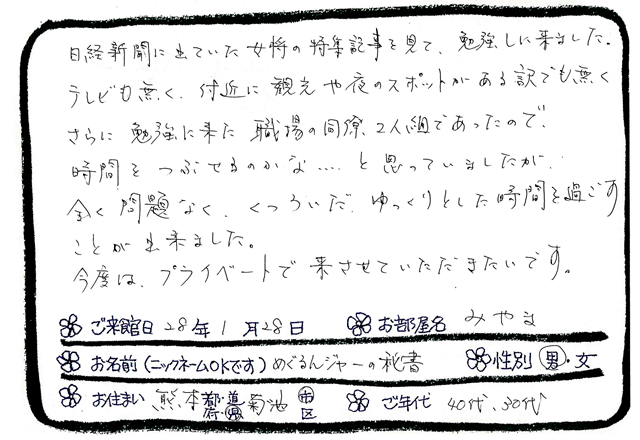 日経新聞に出ていた女将の特集記事を見て、勉強しに来ました。
テレビも無く、付近に観光や夜のスポットがある訳でも無く
さらに勉強に来た職場の同僚、2人組であったので、
時間をつぶせるのかな……と思っていましたが、
全く問題なく、くつろいだ、ゆっくりとした時間を過ごす
ことが出来ました。
今度は、プライベートで来させていただきたいです。
ご来館日 28年1月28日 お部屋名 みやま
お名前(ニックネームOKです) めぐるんジャーの秘書 性別 男・女
お住まい 熊本都道府県菊池市区 ご年代 40代、30代